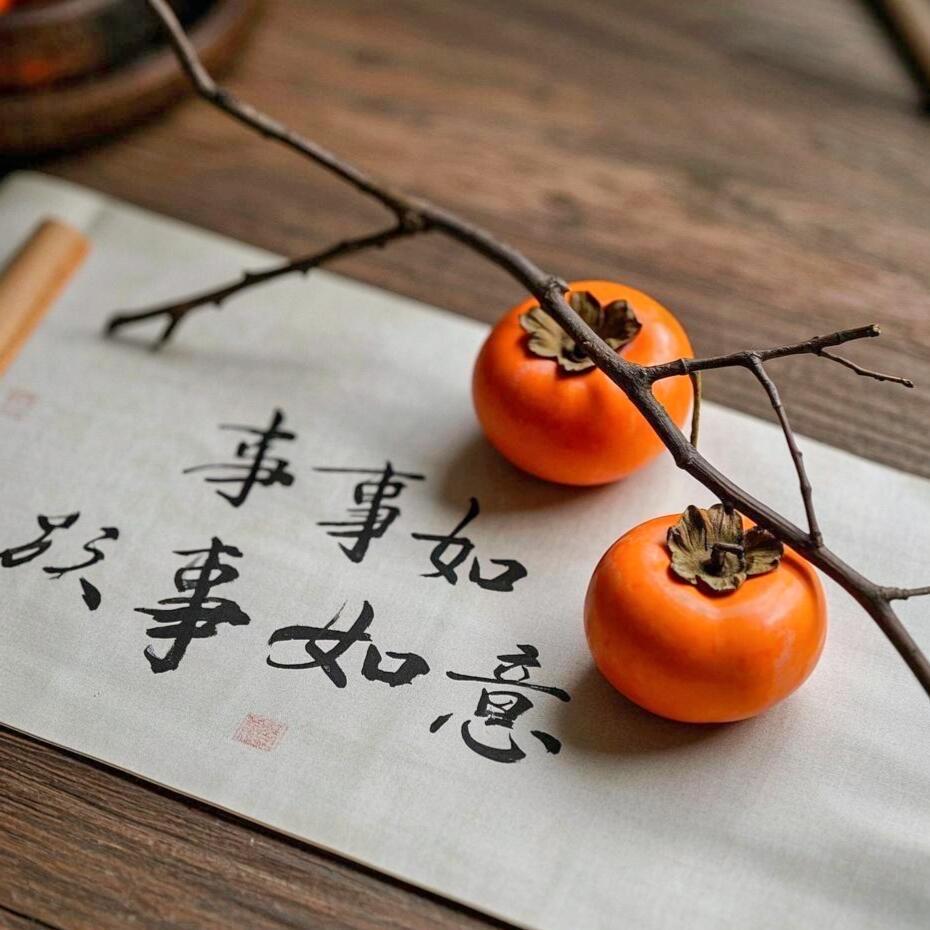 事事如
事如意